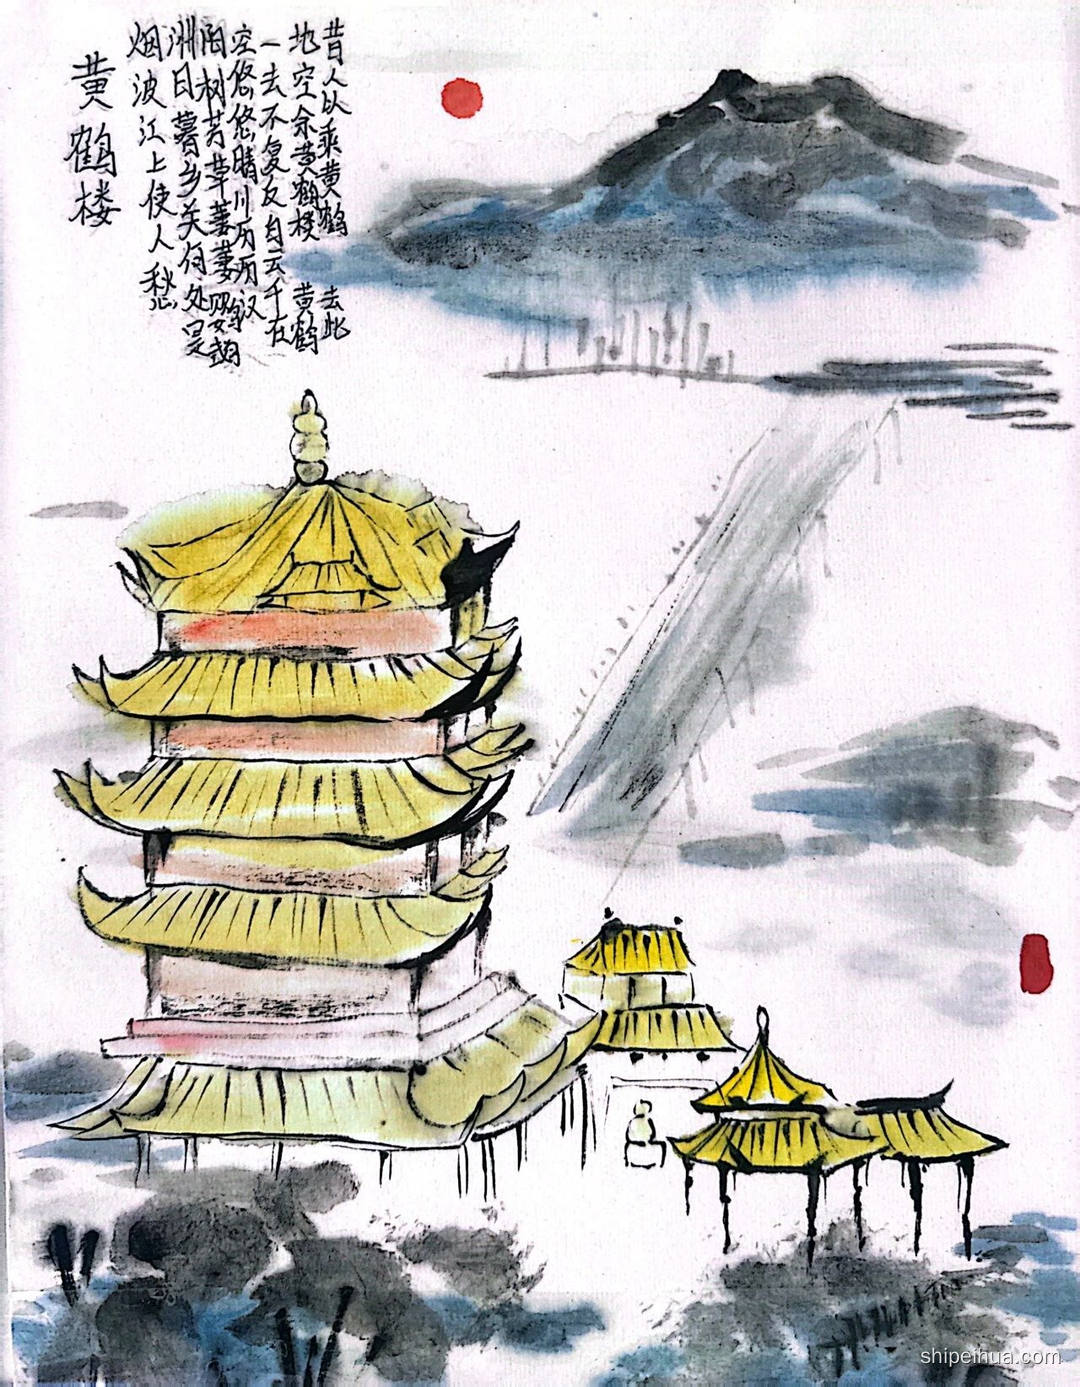 昔人以乘黄鹤 去此
地空余黄鹤楼 黄鹤
一去不复反白云千在
空悠悠晴川历历汉
阳树芳草萋萋鹦鹉
洲日暮乡关何处是
烟波江上使人愁
黄鹤楼
shipeihua.com